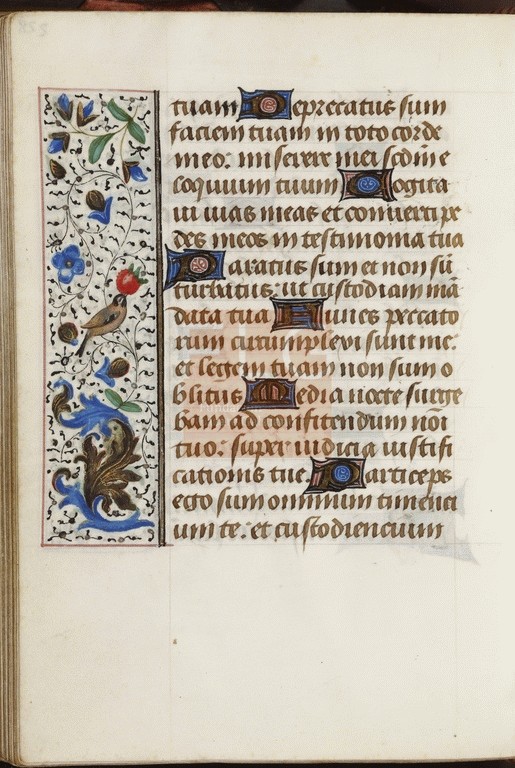 tuam Deprecatus sum
faciem tuam in toto corde
meo: miserere mei scdm e
loquium tuum Cogita
ui uias meas et conuerti pe
des meos in testimonia tua
Paratus sum et non sū
turbatus: ut custodiam mā
data tua Funes peccato
rum circumplexi sunt me:
et legem tuam non sum o
blitus Media nocte surge
bam ad confitendum tibi
tuo: super iudicia iustifi
cationis tue. Particeps
ego sum omnium timenti
um te: et custodiencium